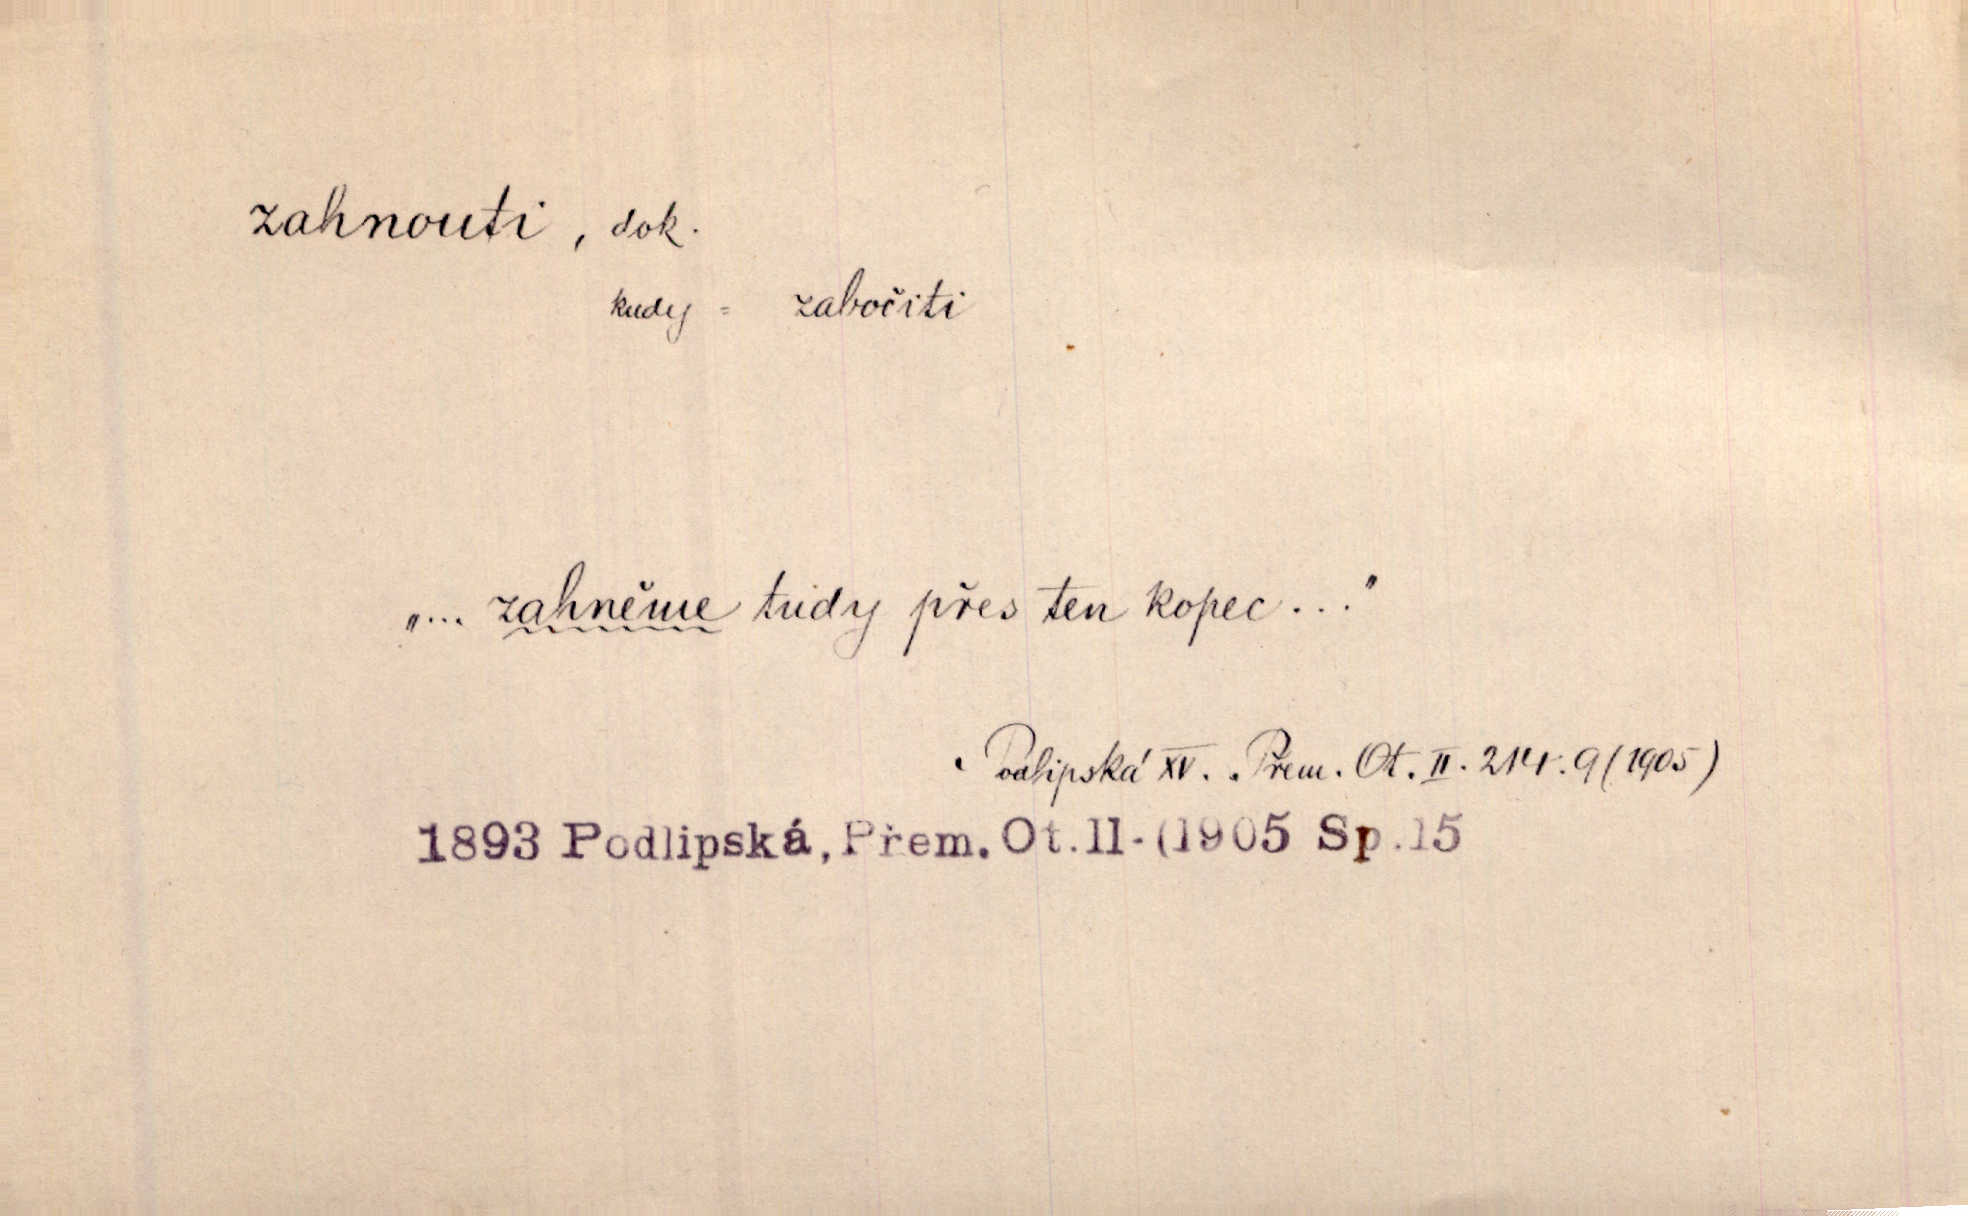 zahnouti, dok.
kudy = zabočiti
„... zahněme tudy přes ten kopec..."
Podlipská XV. Přem. Ot. II. 214. 9 (1905)
1893 Podlipská, Přem. Ot. II-(1905 Sp. 15